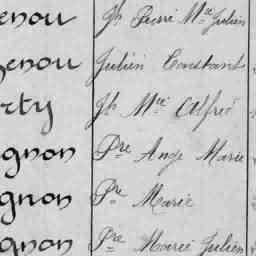 enou Jh Pierre Mie Julien
henou Julien Constant
rty Jh Mie Alfred
gnon Pre Ange Marie
gnon Pre Marie
gnon Pre Marie Julien